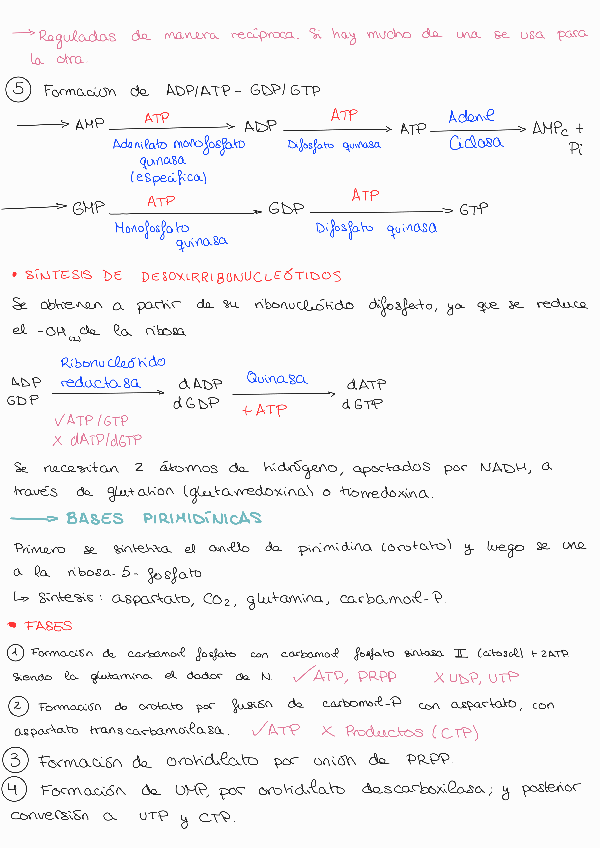 → Reguladas de manera recíproca. Si hay mucho de una se usa para
la otra
5 Formación de ADP/ATP - GDP/GTP
→ AMP ATP → ADP ATP → ATP Adenil → AMPc +
Adenilato monofosfato Difosfato quinasa Ciclasa Pi
quinasa
(específica)
→ GMP ATP → GDP ATP → GTP
Monofosfato Difosfato quinasa
quinasa
• SÍNTESIS DE DESOXIRRIBONUCLEÓTIDOS
Se obtienen a partir de su ribonucleótido difosfato, ya que se reduce
el -OH(2) de la ribosa
Ribonucleótido
ADP reductasa → dADP Quinasa → dATP
GDP dGDP + ATP dGTP
✓ ATP/GTP
X dATP/dGTP
Se necesitan 2 átomos de hidrógeno, aportados por NADH, a
través de glutation (glutarredoxina) o tiorredoxina.
→ BASES PIRIMIDÍNICAS
Primero se sintetiza el anillo de pirimidina (orotato) y luego se une
a la ribosa-5-fosfato
↳ Síntesis: aspartato, CO2, glutamina, carbamoil-P.
• FASES
1 Formación de carbamoil fosfato con carbamoil fosfato sintasa II (citosol) + 2ATP
siendo la glutamina el dador de N. ✓ATP, PRPP X UDP, UTP
2 Formación de orotato por fusión de carbomoil-P con aspartato, con
aspartato transcarbamoilasa. ✓ATP X Productos (CTP)
3 Formación de orotidilato por unión de PRPP
4 Formación de UMP, por orotidilato descarboxilasa; y posterior
conversión a UTP y CTP.